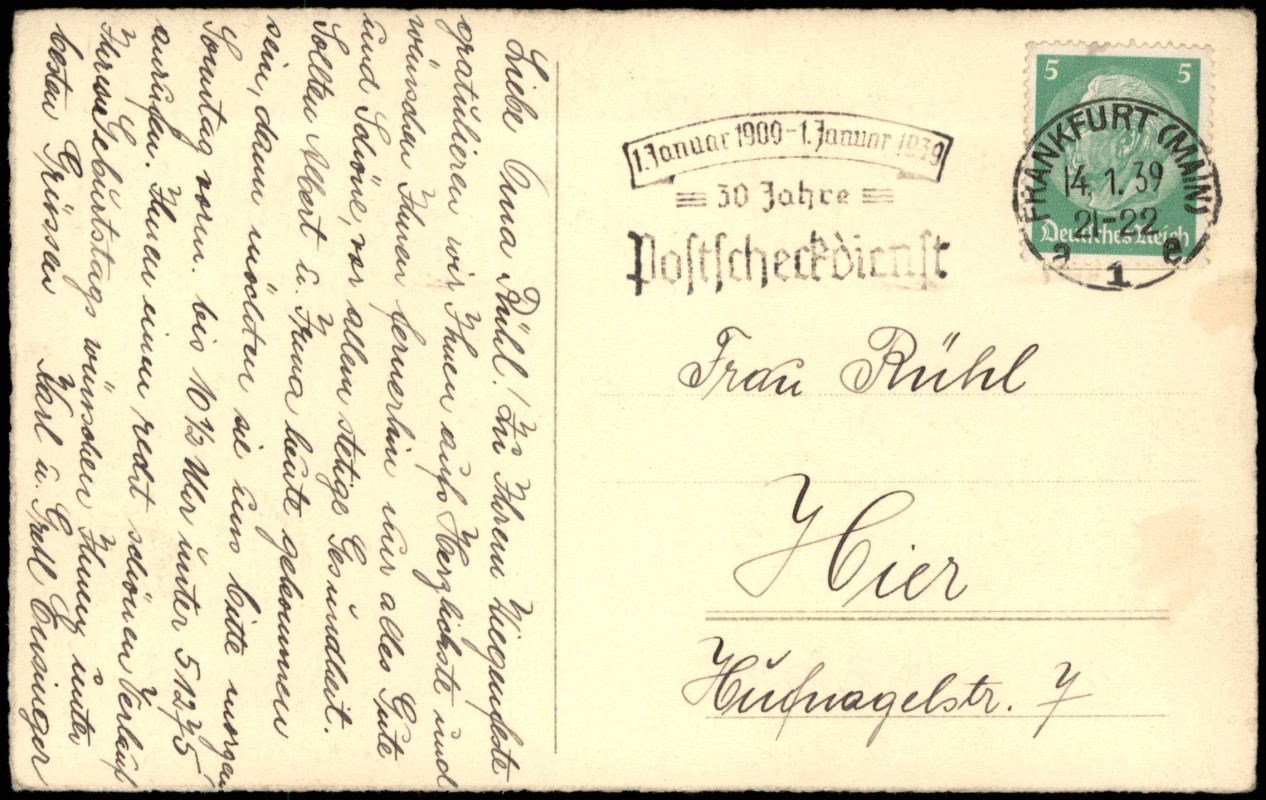 Liebe Anna Rühl! Zu Ihrem Wiegenfeste
gratulieren wir Ihnen aufs Herzlichste und
wünschen Ihnen fernerhin nur alles Gute
und Schöne, vor allem stetige Gesundheit.
Sollten Albert u. Irma heute gekommen
sein, dann möchten sie uns bitte morgen
Sonntag vorm. bis 10 ½ Uhr unter 51275
anrufen. Ihnen einen recht schönen Verlauf
Ihres Geburtstags wünschen Ihnen unter
besten Grüssen Karl u. Gretl Ensinger
1. Januar 1909 - 1. Januar 1939
30 Jahre
Postscheckdienst
5 5
Deutsches Reich
FRANKFURT (MAIN)
14. 1. 39
21-22
a 1 e
Frau Rühl
Hier
Hufnagelstr. 7